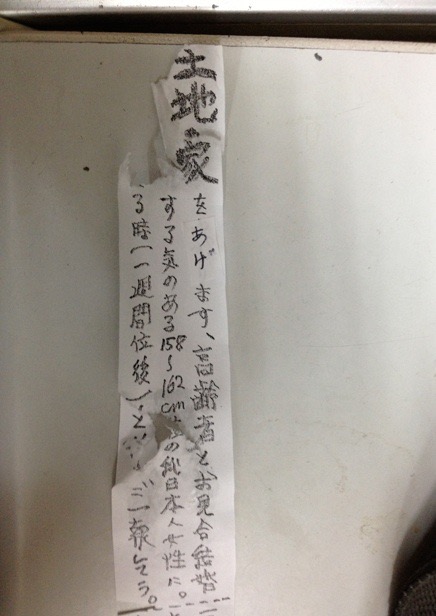 土地家
をあげます、高齢者とお見合結婚
する気のある158〜162cm の純日本人女性に。
る時(一週間位後)、と